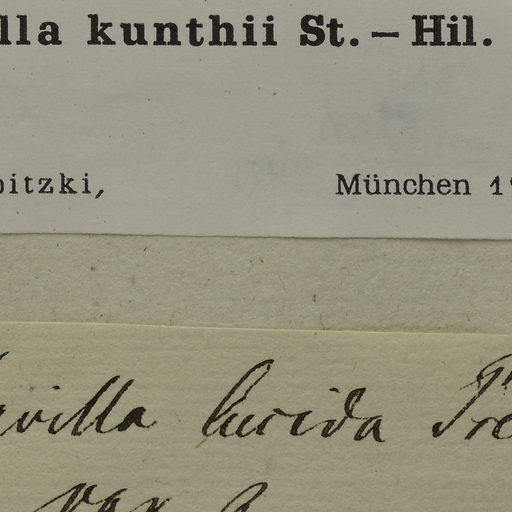 lla kunthii St.–Hil.
bitzki, München 19
villa lucida Pre
var.